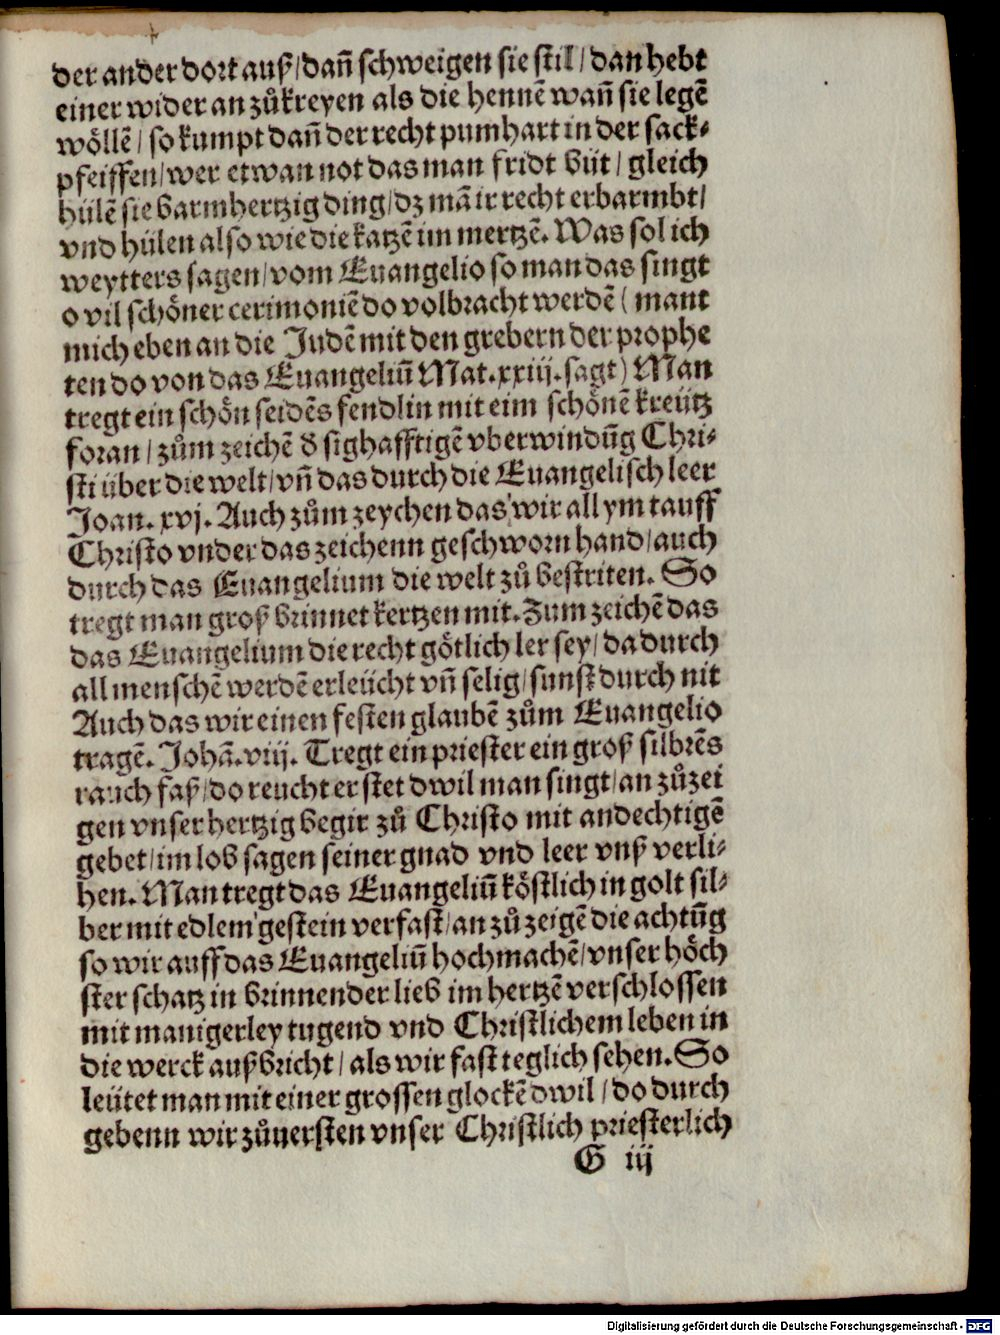 der ander dort auß/dañ schweigen sie stil/dan hebt
einer wider an zůkreyen als die hennē wañ sie legē
wöllē/so kumpt dañ der recht pumhart in der sack⸗
pfeiffen/wer etwan not das man fridt büt/gleich
hülē sie barmhertzig ding/dz mā ir recht erbarmbt/
vnd hülen also wie die katzē im mertzē. Was sol ich
weytters sagen/vom Euangelio so man das singt
o vil schöner cerimoniē do volbracht werdē (mant
mich eben an die Judē mit den grebern der prophe
ten do von das Euangeliũ Mat.xxiij.sagt) Man
tregt ein schön seidēs fendlin mit eim schönē kreütz
foran/zům zeichē d̕ sighafftigē vberwindũg Chri⸗
sti über die welt/vñ das durch die Euangelisch leer
Joan. xvj. Auch zům zeychen das wir all ym tauff
Christo vnder das zeichenn geschworn hand/auch
durch das Euangelium die welt zů bestriten. So
tregt man groß brinnet kertzen mit. Zum zeichē das
das Euangelium die recht götlich ler sey/da durch
all menschē werdē erleücht vñ selig/sunst durch nit
Auch das wir einen festen glaubē zům Euangelio
tragē. Johā.viij. Tregt ein priester ein groß silbrēs
rauch faß/do reucht er stet dwil man singt/an zůzei
gen vnser hertzig begir zů Christo mit andechtigē
gebet/im lob sagen seiner gnad vnd leer vnß verli⸗
hen. Man tregt das Euangeliũ köstlich in golt sil⸗
ber mit edlem gestein verfast/an zů zeigē die achtũg
so wir auff das Euangeliũ hochmachē/vnser höch
ster schatz in brinnender lieb im hertzē verschlossen
mit manigerley tugend vnd Christlichem leben in
die werck außbricht/als wir fast teglich sehen. So
leütet man mit einer grossen glockē dwil/do durch
gebenn wir zůuersten vnser Christlich priesterlich
G iij
Digitalisierung gefördert durch die Deutsche Forschungsgemeinschaft - DFG